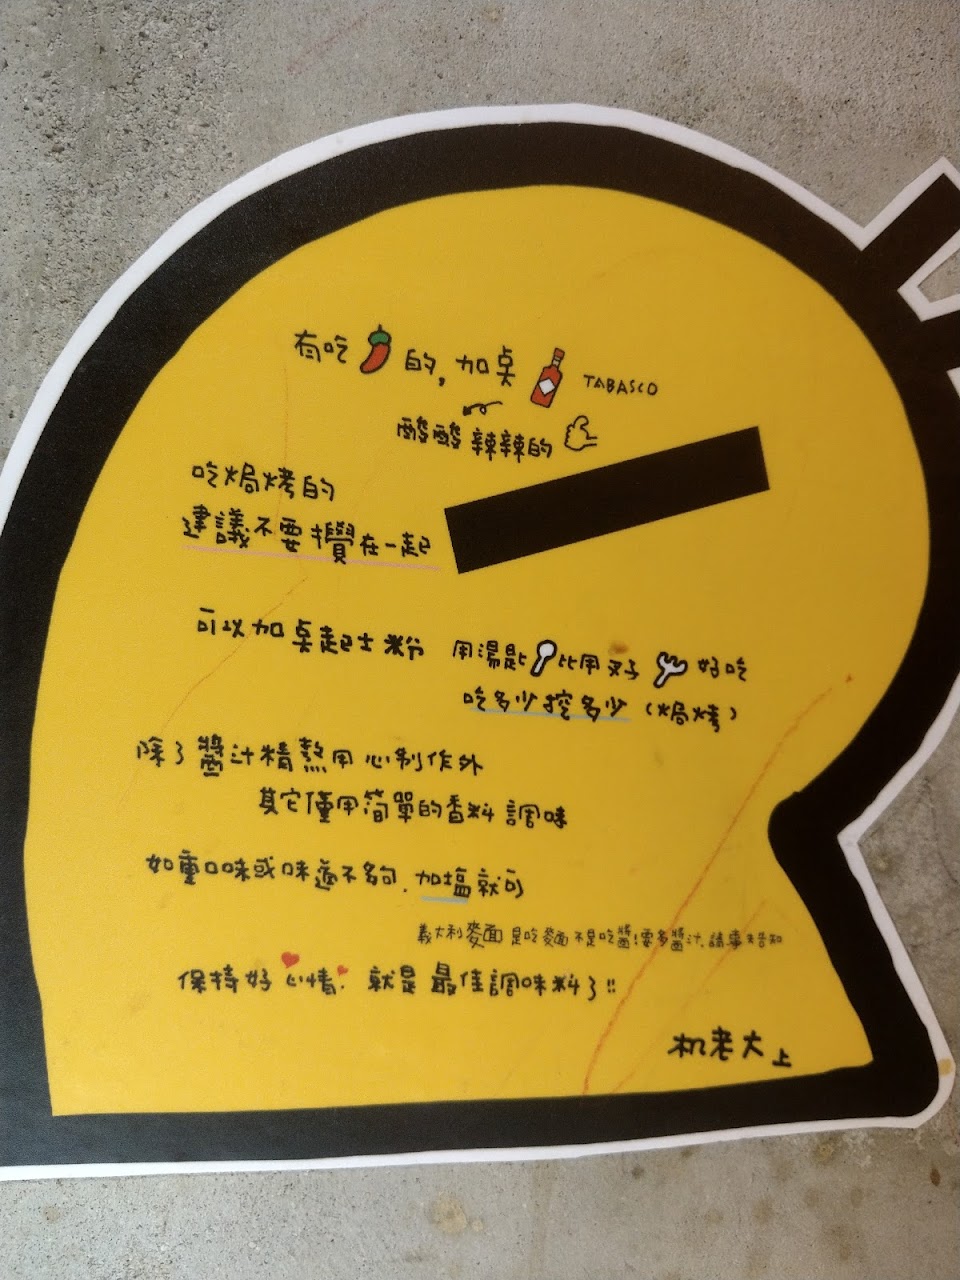 有吃🌶的,加桌 TABASCO
酸酸辣辣的
吃焗烤的
建議不要攪在一起
可以加桌起士粉
用湯匙 比用叉子 好吃
吃多少挖多少(焗烤)
除了醬汁精熬用心制作外
其它僅用簡單的香料調味
如重口味或味道不夠.加塩就可
義大利麥面 是吃麥麵 不是吃醬!要多醬汁.請事先告知
保持好心情.就是最佳調味料了!!
机老大上